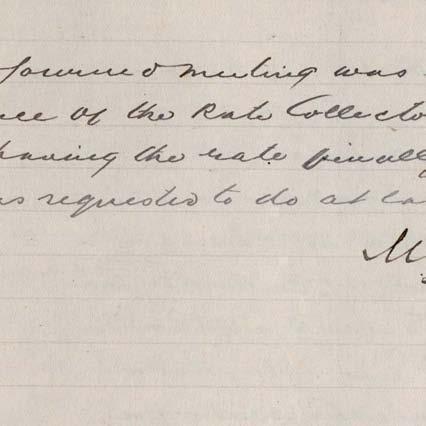 journed meeting was
nce of the Rate Collecto
having the rate finally
as requested to do at la
M